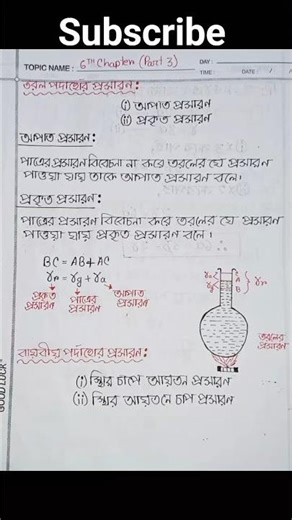 Subscribe
TOPIC NAME : 6TH Chapter (Part 3)
DAY :
TIME :
DATE : / /
তরল পদার্থের প্রসারন :
(i) আপাত প্রসারন
(ii) প্রকৃত প্রসারন
আপাত প্রসারন :
পাত্রের প্রসারন বিবেচনা না করে তরলের যে প্রসারন
পাওয়া যায় তাকে আপাত প্রসারন বলে।
প্রকৃত প্রসারন :
পাত্রের প্রসারন বিবেচনা করে তরলের যে প্রসারন
পাওয়া যায় প্রকৃত প্রসারন বলে।
BC = AB + AC
γr = γg + γa
প্রকৃত প্রসারন
পাত্রের প্রসারন
আপাত প্রসারন
γr
তরলের
প্রসারন
বায়বীয় পর্দাথের প্রসারন :
(i) স্থির চাপে আয়তন প্রসারন
(ii) স্থির আয়তনে চাপ প্রসারন
GOOD LUCK